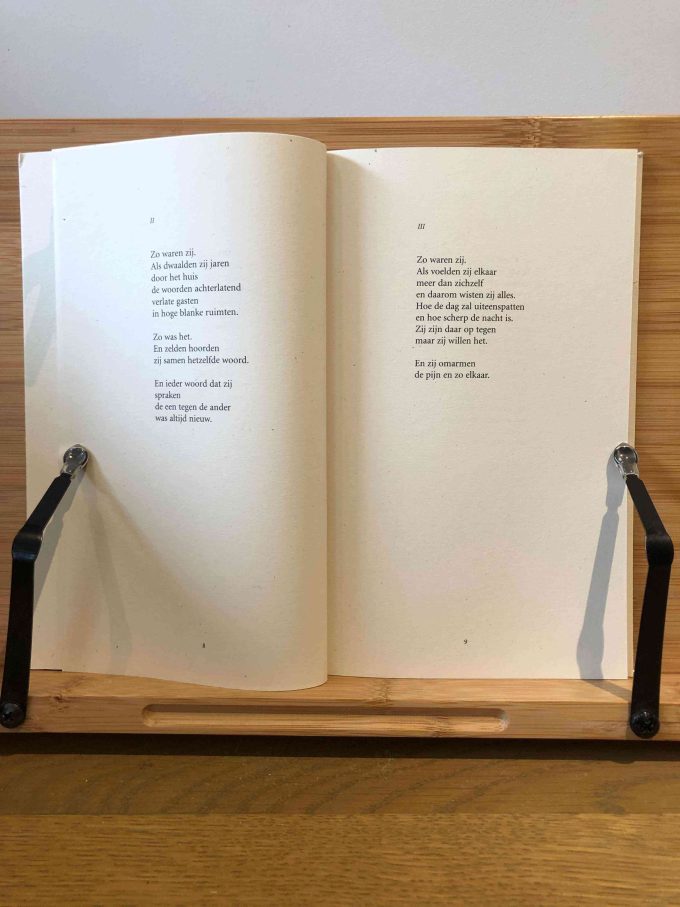 II
Zo waren zij.
Als dwaalden zij jaren
door het huis
de woorden achterlatend
verlate gasten
in hoge blanke ruimten.
Zo was het.
En zelden hoorden
zij samen hetzelfde woord.
En ieder woord dat zij
spraken
de een tegen de ander
was altijd nieuw.
8
III
Zo waren zij.
Als voelden zij elkaar
meer dan zichzelf
en daarom wisten zij alles.
Hoe de dag zal uiteenspatten
en hoe scherp de nacht is.
Zij zijn daar op tegen
maar zij willen het.
En zij omarmen
de pijn en zo elkaar.
9